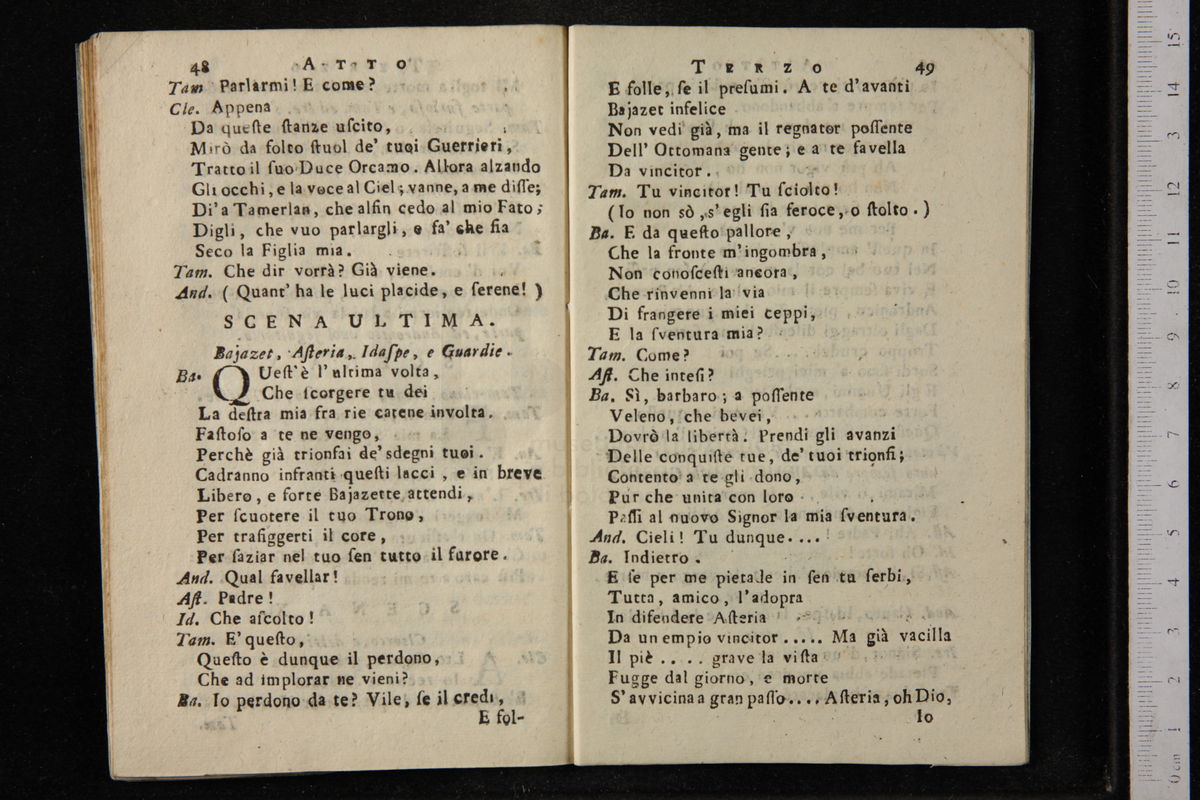 48 ATTO
Tam Parlarmi! E come?
Cle. Appena
Da queſte ſtanze uſcito,
Mirò da folto ſtuol de' tuoi Guerrieri,
Tratto il ſuo Duce Orcamo. Allora alzando
Gli occhi, e la voce al Ciel; vanne, a me diſſe;
Di' a Tamerlan, che alfin cedo al mio Fato;
Digli, che vuo parlargli, e fa' che ſia
Seco la Figlia mia.
Tam. Che dir vorrà? Già viene.
And. ( Quant' ha le luci placide, e ſerene! )
SCENA ULTIMA.
Bajazet, Aſteria, Idaſpe, e Guardie.
Ba. QUeſt'è l'ultima volta,
Che ſcorgere tu dei
La deſtra mia fra rie catene involta.
Faſtoſo a te ne vengo,
Perchè già trionfai de' sdegni tuoi.
Cadranno infranti queſti lacci, e in breve
Libero, e forte Bajazette attendi,
Per ſcuotere il tuo Trono,
Per trafiggerti il core,
Per ſaziar nel tuo ſen tutto il furore.
And. Qual favellar!
Aſt. Padre!
Id. Che aſcolto!
Tam. E' queſto,
Queſto è dunque il perdono,
Che ad implorar ne vieni?
Ba. Io perdono da te? Vile, ſe il credi,
E fol-
TERZO 49
E folle, ſe il preſumi. A te d'avanti
Bajazet infelice
Non vedi già, ma il regnator poſſente
Dell' Ottomana gente; e a te favella
Da vincitor.
Tam. Tu vincitor! Tu ſciolto!
(Io non sò, s'egli ſia feroce, o ſtolto.)
Ba. E da queſto pallore,
Che la fronte m'ingombra,
Non conoſceſti ancora,
Che rinvenni la via
Di frangere i miei ceppi,
E la ſventura mia?
Tam. Come?
Aſt. Che inteſi?
Ba. Sì, barbaro; a poſſente
Veleno, che bevei,
Dovrò la libertà. Prendi gli avanzi
Delle conquiſte tue, de' tuoi trionfi;
Contento a te gli dono,
Pur che unita con loro
Paſſi al nuovo Signor la mia ſventura.
And. Cieli! Tu dunque....
Ba. Indietro.
E ſe per me pietade in ſen tu ſerbi,
Tutta, amico, l'adopra
In difendere Aſteria
Da un empio vincitor..... Ma già vacilla
Il piè .... grave la viſta
Fugge dal giorno, e morte
S'avvicina a gran paſſo.... Aſteria, oh Dio,
Io